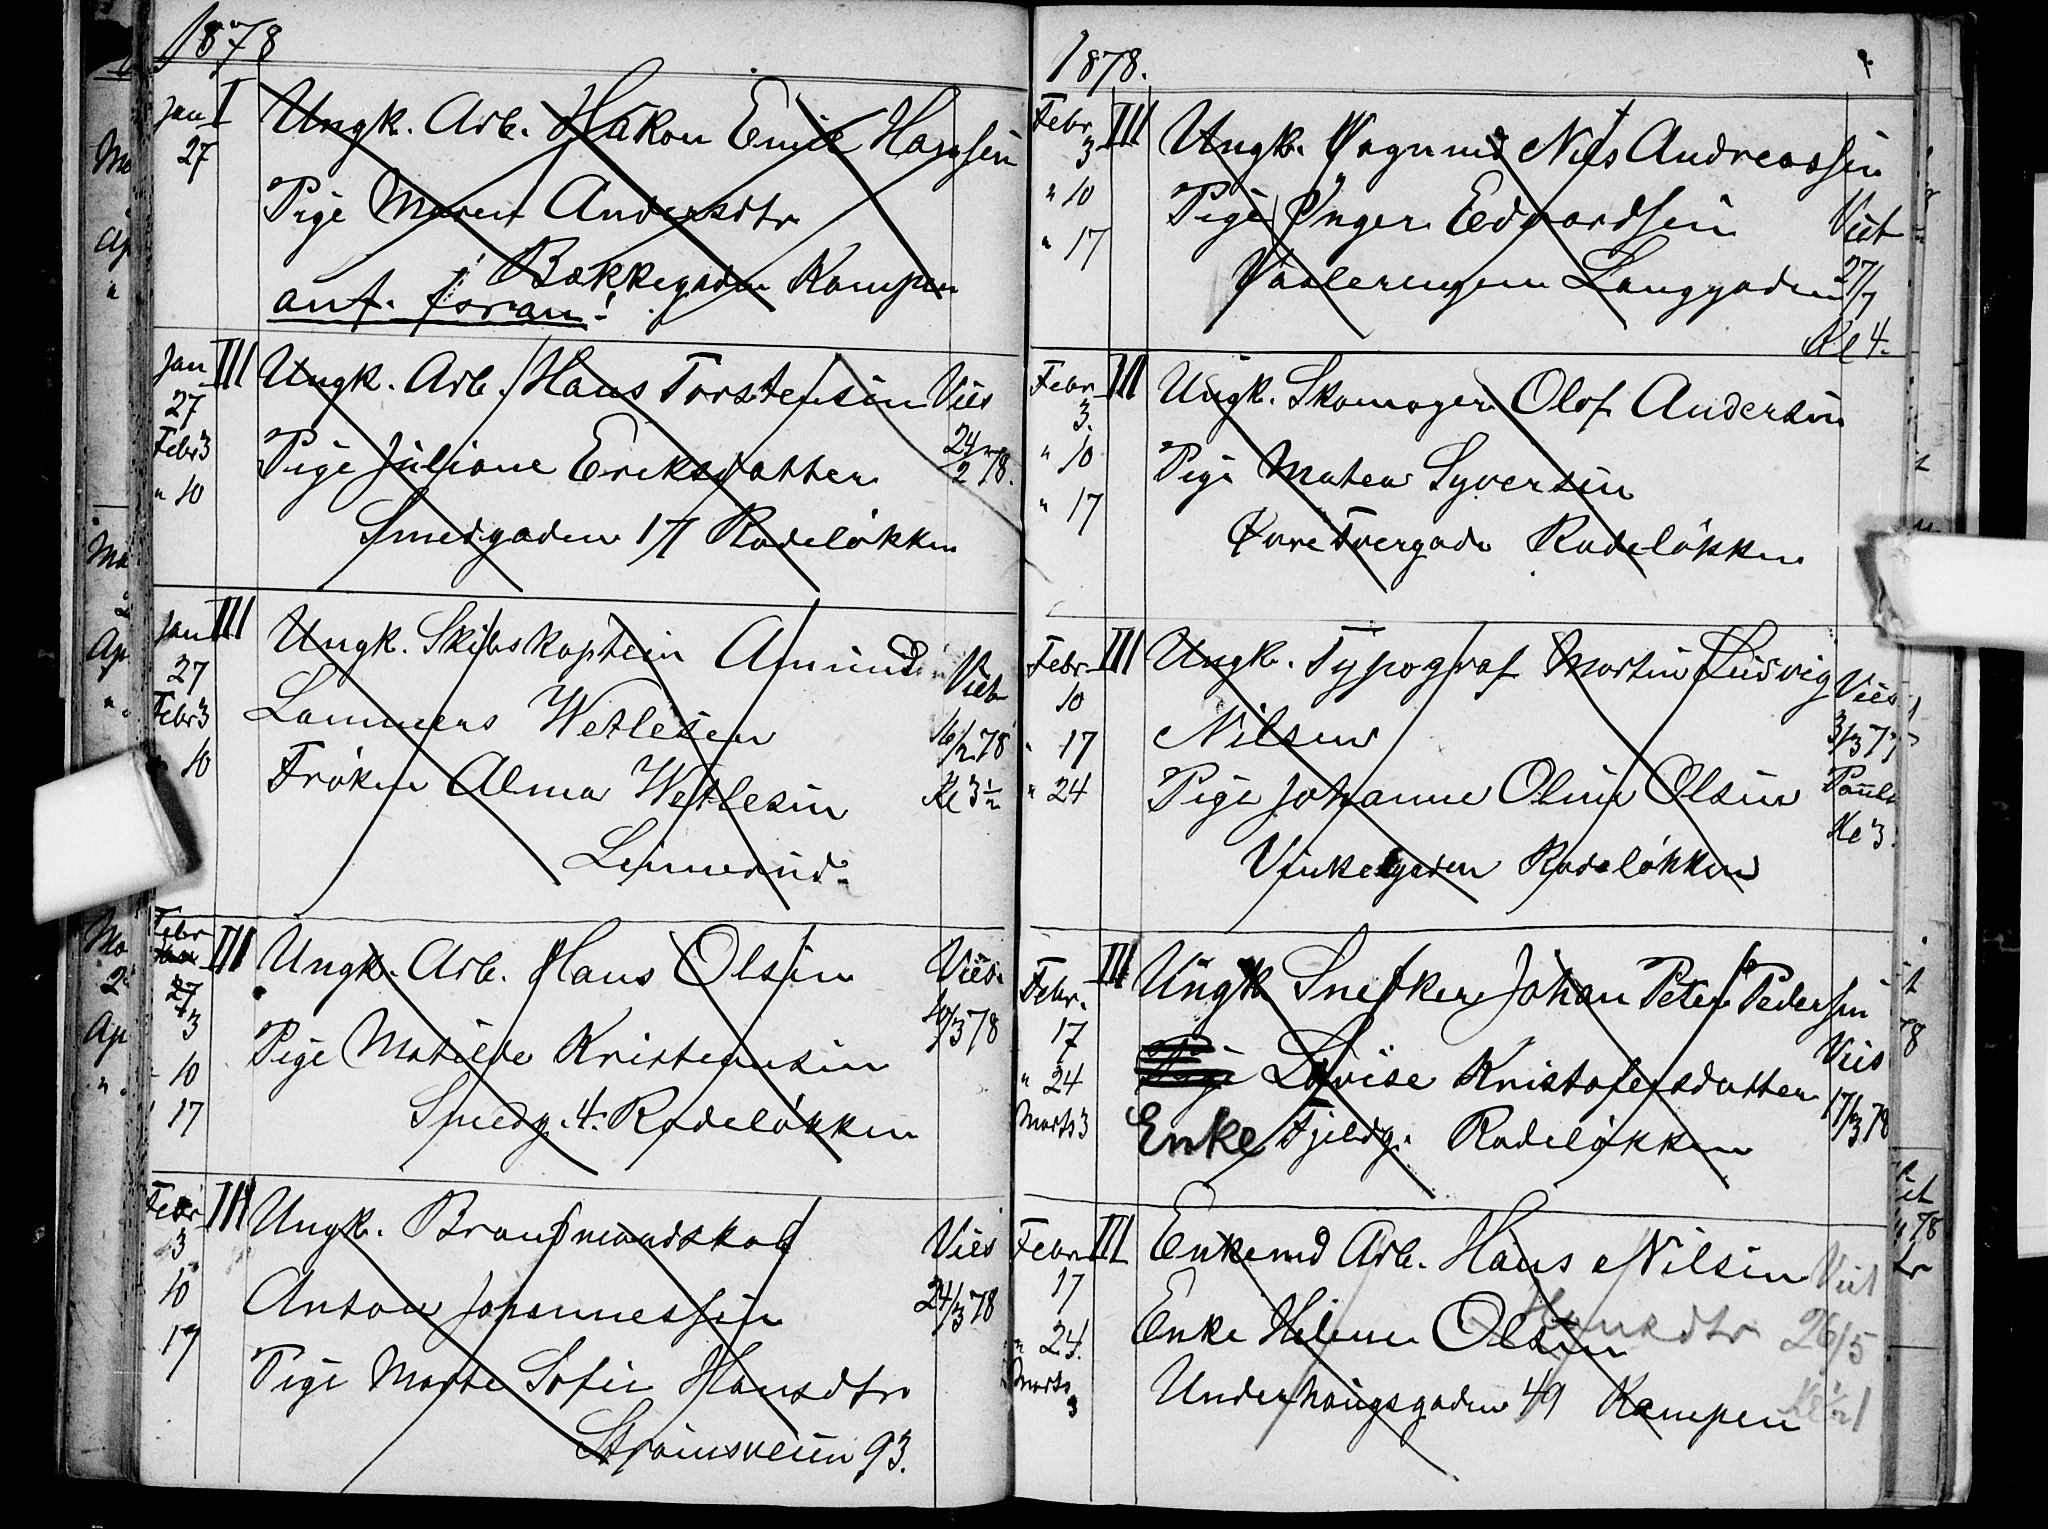 1878
Jan I Ungk. Arb. Håkon Emil Hansen
27
Pige Maren Andersdtr
Bækkegaden Kampen
anf. foran!
Jan III Ungk. Arb. Hans Torstensen Vies
27
Febr 3 Pige Juliane Eriksdatter 24/2 78.
" 10
Smedgaden 17 Rodeløkken
Jan III Ungk. Skibskaptein Amund
27 Viet
Febr 3 Lammers Wetlesen 16/2 78
10 Frøken Alma Wetlesen Kl 3 1/2
Linnerud.
Febr III Ungk. Arb. Hans Olsen Vies.
Jan
27
3 10/3 78
Pige Matilde Kristensen
" 10
" 17 Smedg. 4. Rodeløkken
Febr III Ungk. Brandmandskab Vies
3
10 Anton Johannessen 24/3 78
17
Pige Marte Sofie Hansdtr
Strømsveien 93.
1878.
Febr III Ungk. Vognmd Nils Andreassen
3
" 10 Pige Inger Edvardsen Viet
" 17
Vaalerengen Langgaden 27/7
Kl 4.
Febr III Ungk. Skomager Olof Andersen
3.
" 10 Pige Matea Syversen
" 17
Øvre Tvergade Rodeløkken
Febr III Ungk. Typograf Martin Ludvig Vies
10
" 17 Nilsen 3/3 77
" 24 Pige Johanne Oline Olsen
Kl 3.
Vinkelgaden Rodeløkken
Febr. III Ungk Snekker Johan Peter Pedersen
17 Vies
" 24 Pige Lovise Kristofersdatter
Marts 3 Enke Fjeldg. Rodeløkken 17/3 78
Febr III Enkemd Arb. Hans Nilsen Viet
17
Hansdtr 26/5
" 24. Enke Helene Olsen
Marts
3 Underhaugsgaden 49 Kampen